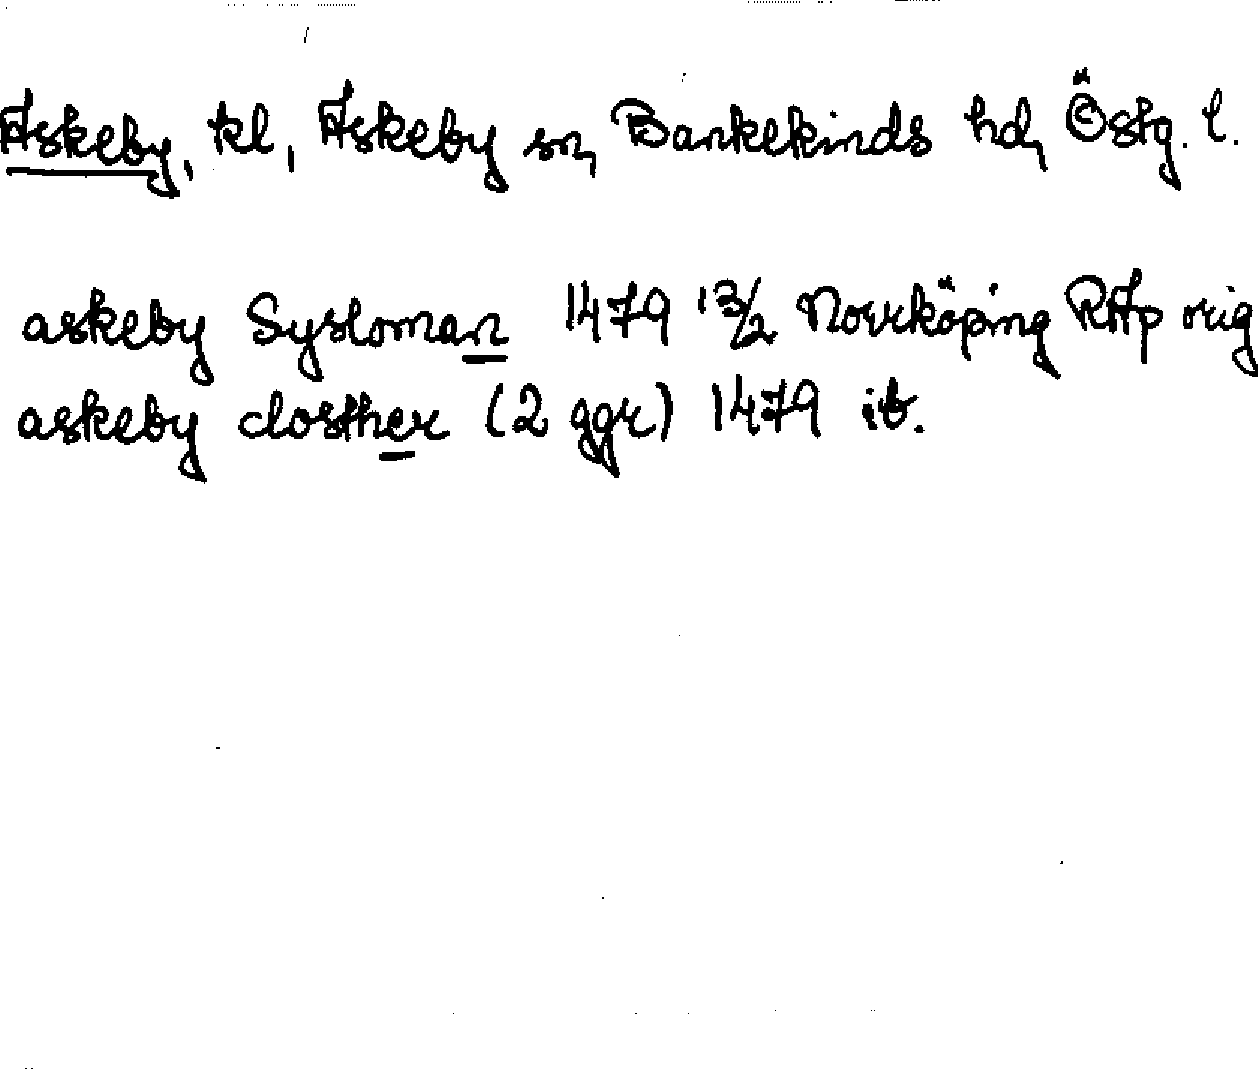 Askeby, kl, Askeby sn, Bankekinds hd, Östg. l.
askeby Sysloman 1479 13/2 Norrköping RAp orig
askeby closther (2 ggr) 1479 ib.